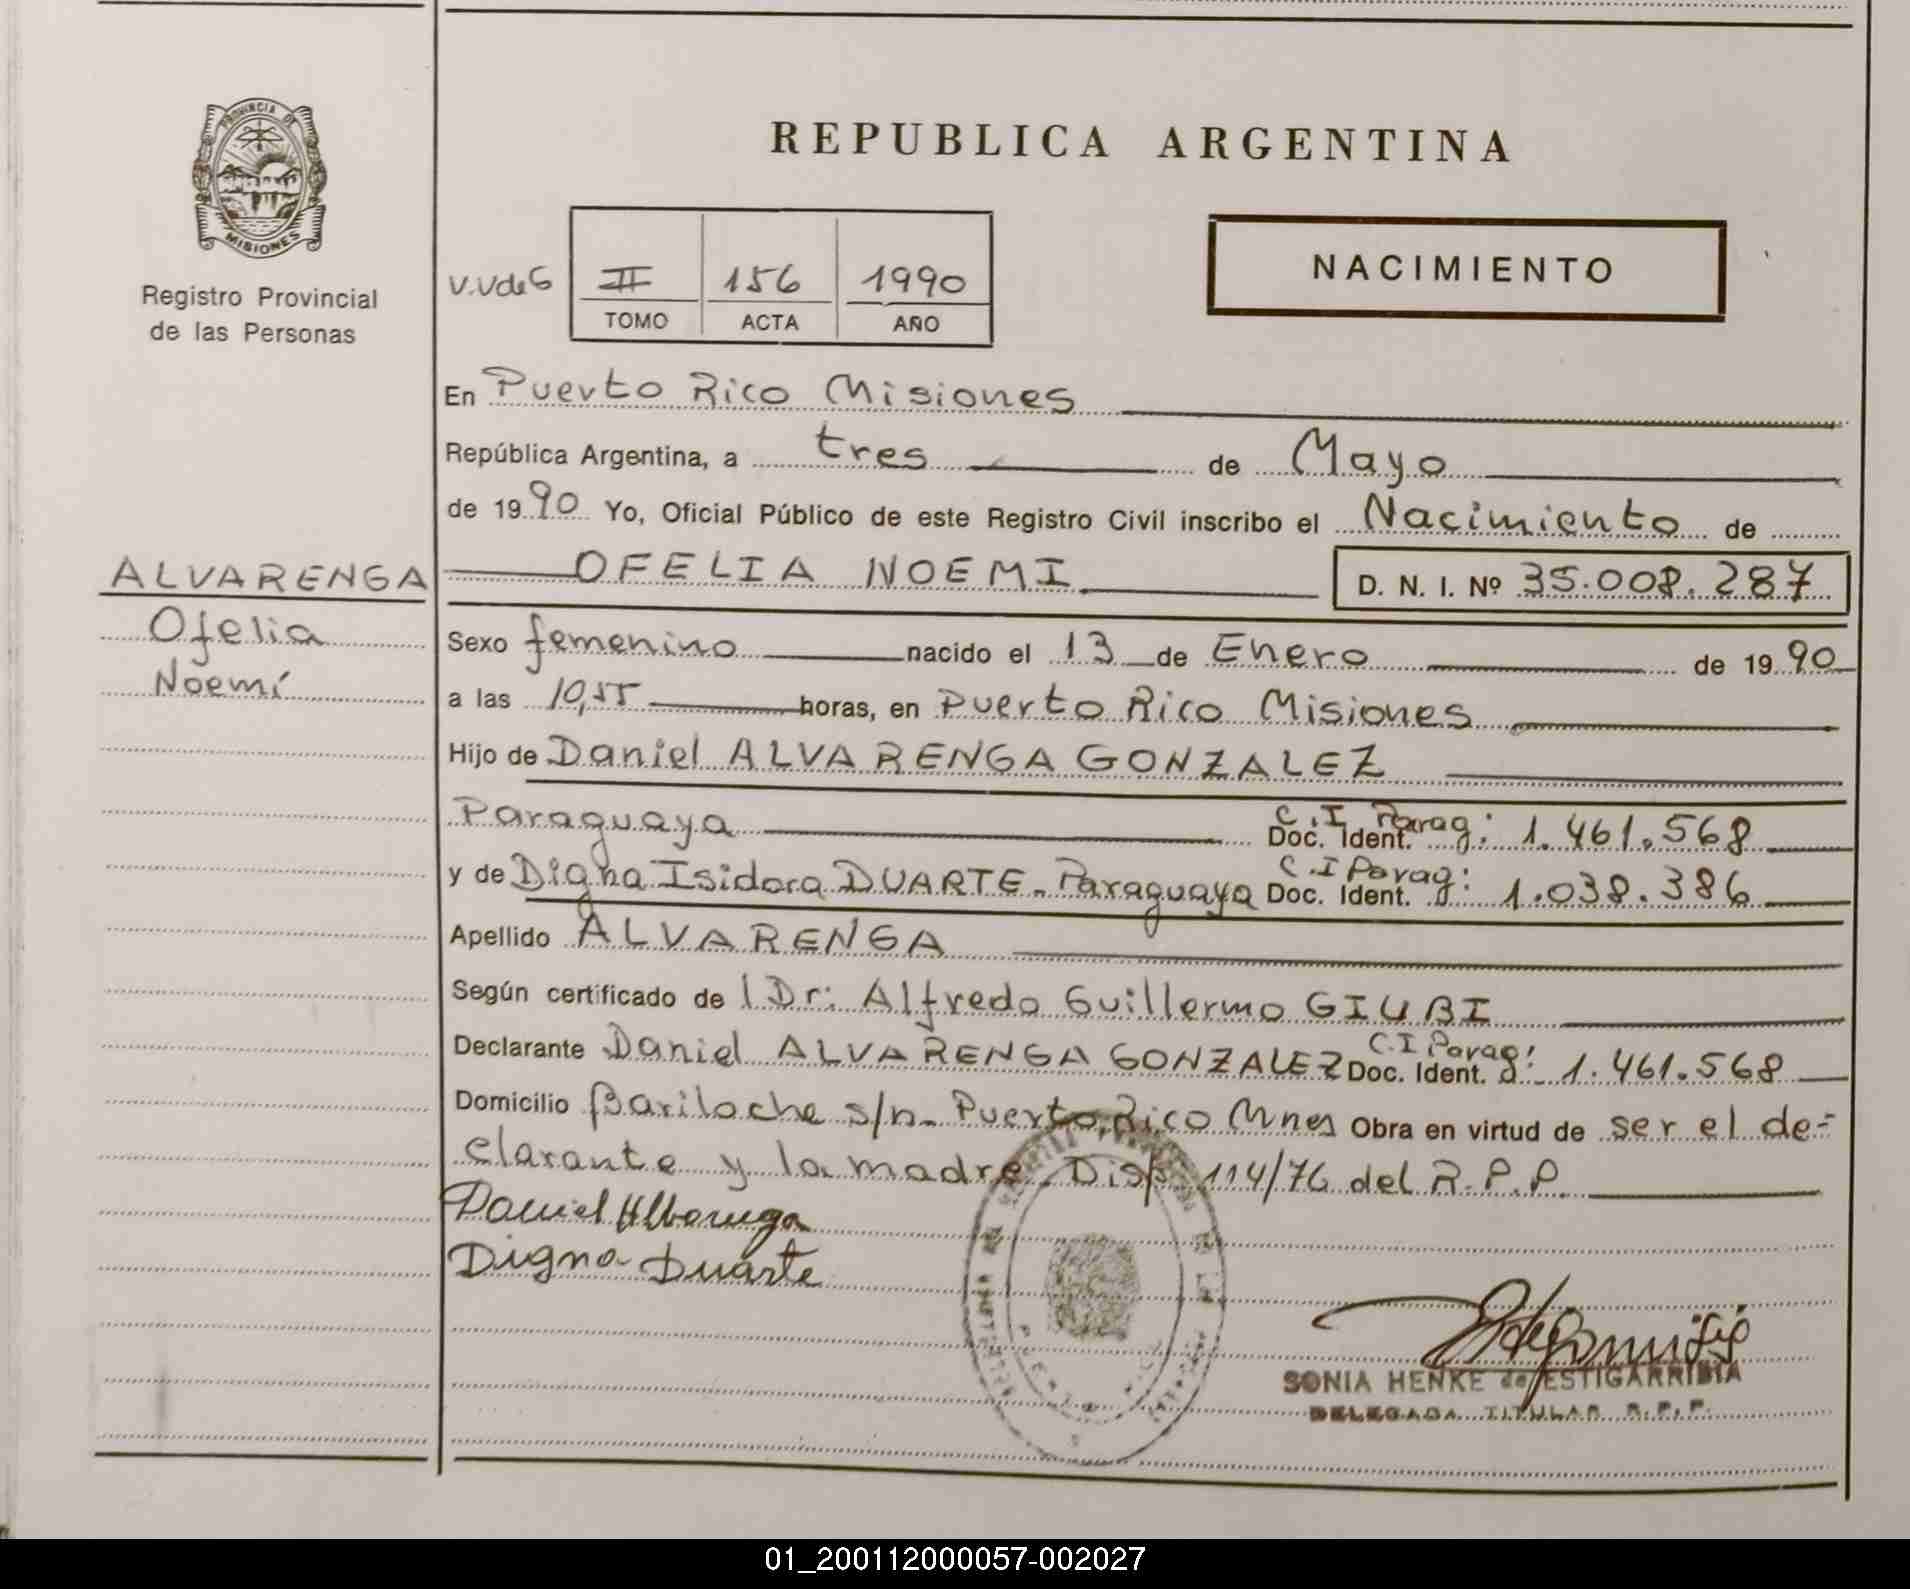 PROVINCIA DE
MISIONES
Registro Provincial
de las Personas
REPUBLICA ARGENTINA
NACIMIENTO
V.VdeG II 156 1990
TOMO ACTA AÑO
En Puerto Rico Misiones
República Argentina, a tres de Mayo
de 1990 Yo, Oficial Público de este Registro Civil inscribo el Nacimiento de
ALVARENGA
Ofelia
Noemí
OFELIA NOEMI D. N. I. Nº 35.008.287
Sexo femenino nacido el 13 de Enero de 1990
a las 10,55 horas, en Puerto Rico Misiones
Hijo de Daniel ALVARENGA GONZALEZ
Paraguaya Doc. Ident. C.I Parag: 1.461.568
y de Digna Isidora DUARTE - Paraguaya Doc. Ident. C.I Parag: 1.038.386
Apellido ALVARENGA
Según certificado de l Dr: Alfredo Guillermo GIUBI
Declarante Daniel ALVARENGA GONZALEZ Doc. Ident. C.I Parag: 1.461.568
Domicilio Bariloche s/n- Puerto Rico Mnes Obra en virtud de ser el de-
clarante y la madre Disp. 114/76 del R.P.P.
Daniel Albarenga
Digna Duarte
SONIA HENKE de ESTIGARRIBIA
DELEGADA TITULAR R.P.P.
01_200112000057-002027